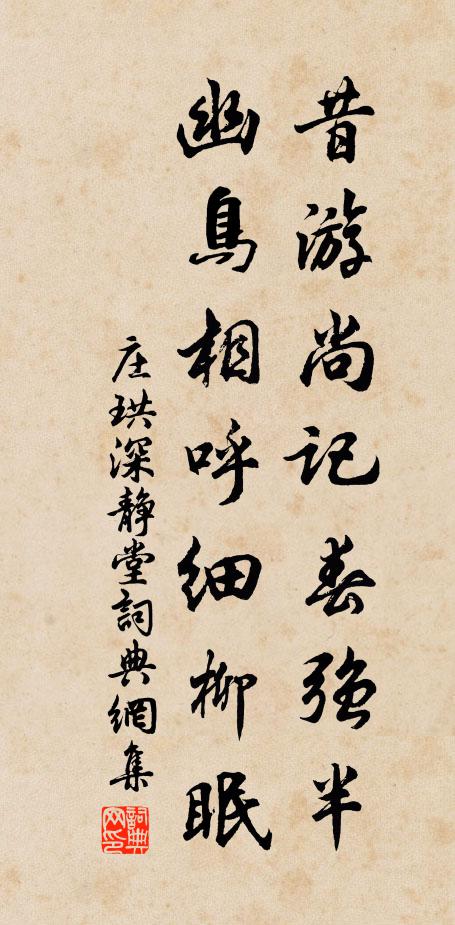 昔游尚记春强半
幽鳥相呼细柳眠
庄珙深静堂詞典網集
詞典网印